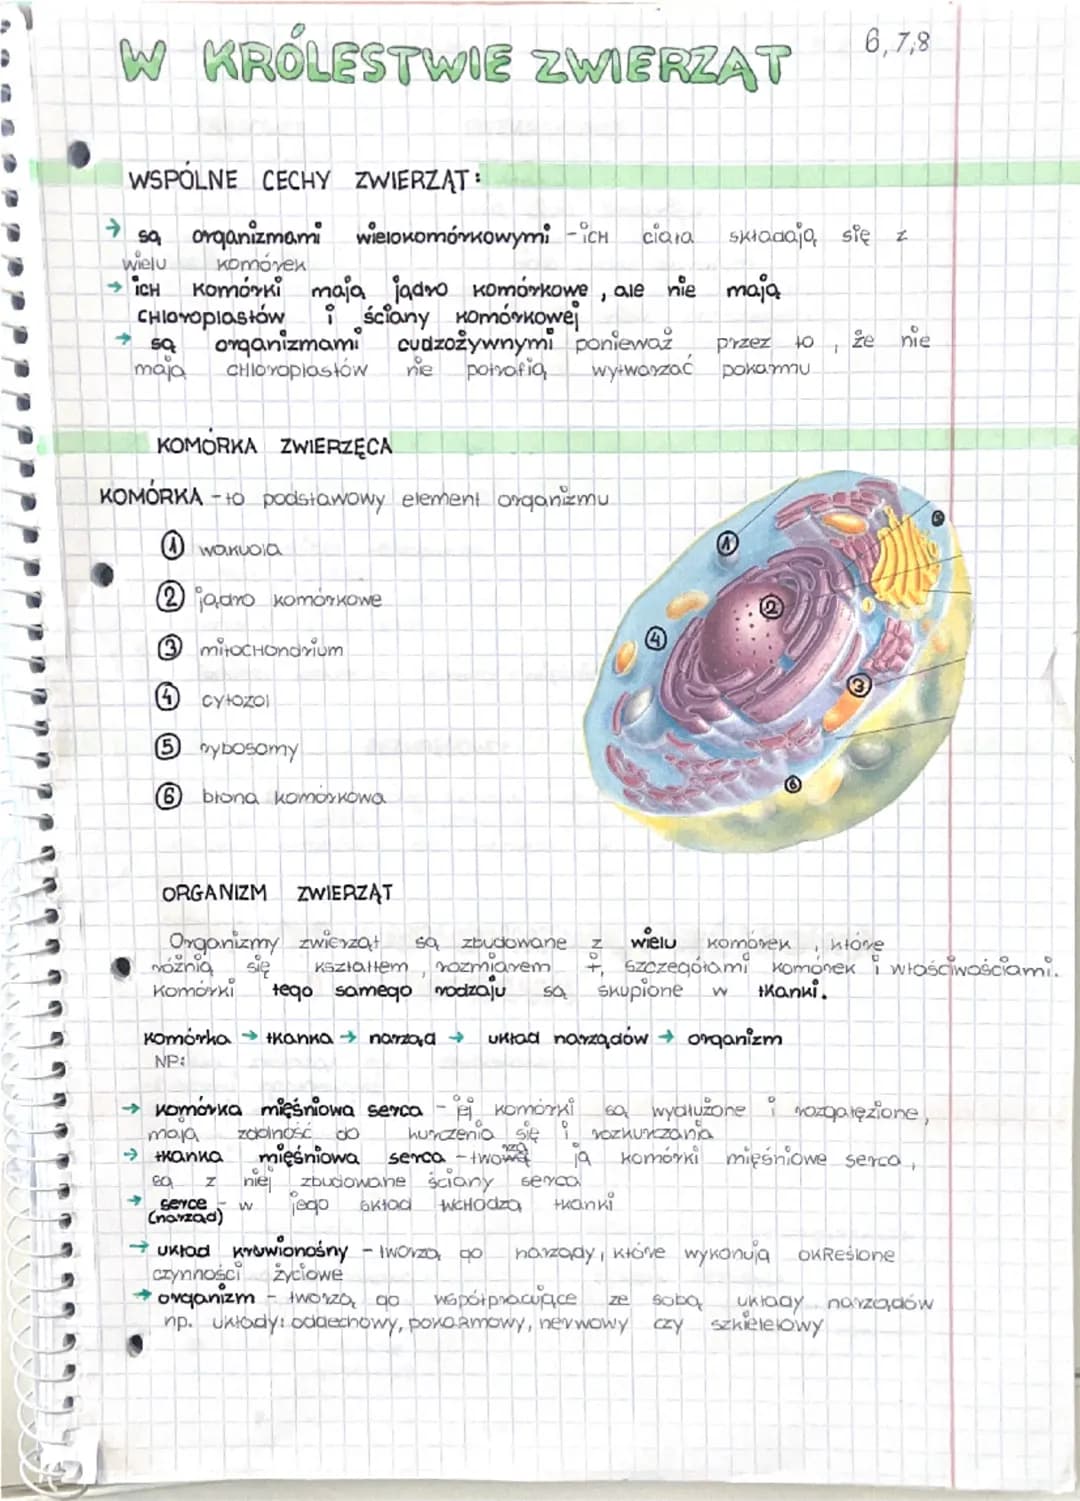 W KRÓLESTWIE ZWIERZĄT
6,7,8
WSPÓLNE CECHY ZWIERZĄT:
→ są organizmami wielokomórkowymi - ich ciała składają się z
wielu komórek
→ ich komórki mają jądro komórkowe, ale nie mają
chloroplastów i ściany komórkowej
→ są organizmami cudzożywnymi ponieważ przez to, że nie
mają chloroplastów nie potrafią wytwarzać pokarmu
KOMÓRKA ZWIERZĘCA
KOMÓRKA - to podstawowy element organizmu
① wakuola
② jądro komórkowe
③ mitochondrium
④ cytozol
⑤ rybosomy
⑥ błona komórkowa
①
②
③
④
⑤
⑥
ORGANIZM ZWIERZĄT
Organizmy zwierząt są zbudowane z wielu komórek, które
różnią się kształtem, rozmiarem +, szczegółami komórek i właściwościami.
Komórki tego samego rodzaju są skupione w tkanki.
komórka → tkanka → narząd → układ narządów → organizm
NP:
→ komórka mięśniowa serca - jej komórki są wydłużone i rozgałęzione,
mają zdolność do kurczenia się i rozkurczania
→ tkanka mięśniowa serca - tworzą ją komórki mięśniowe serca,
są z niej zbudowane ściany serca
→ serce - w jego skład wchodzą tkanki
(narząd)
→ układ krwionośny - tworzą go narządy, które wykonują określone
czynności życiowe
→ organizm - tworzą go współpracujące ze sobą układy narządów
np. układy: oddechowy, pokarmowy, nerwowy czy szkieletowy